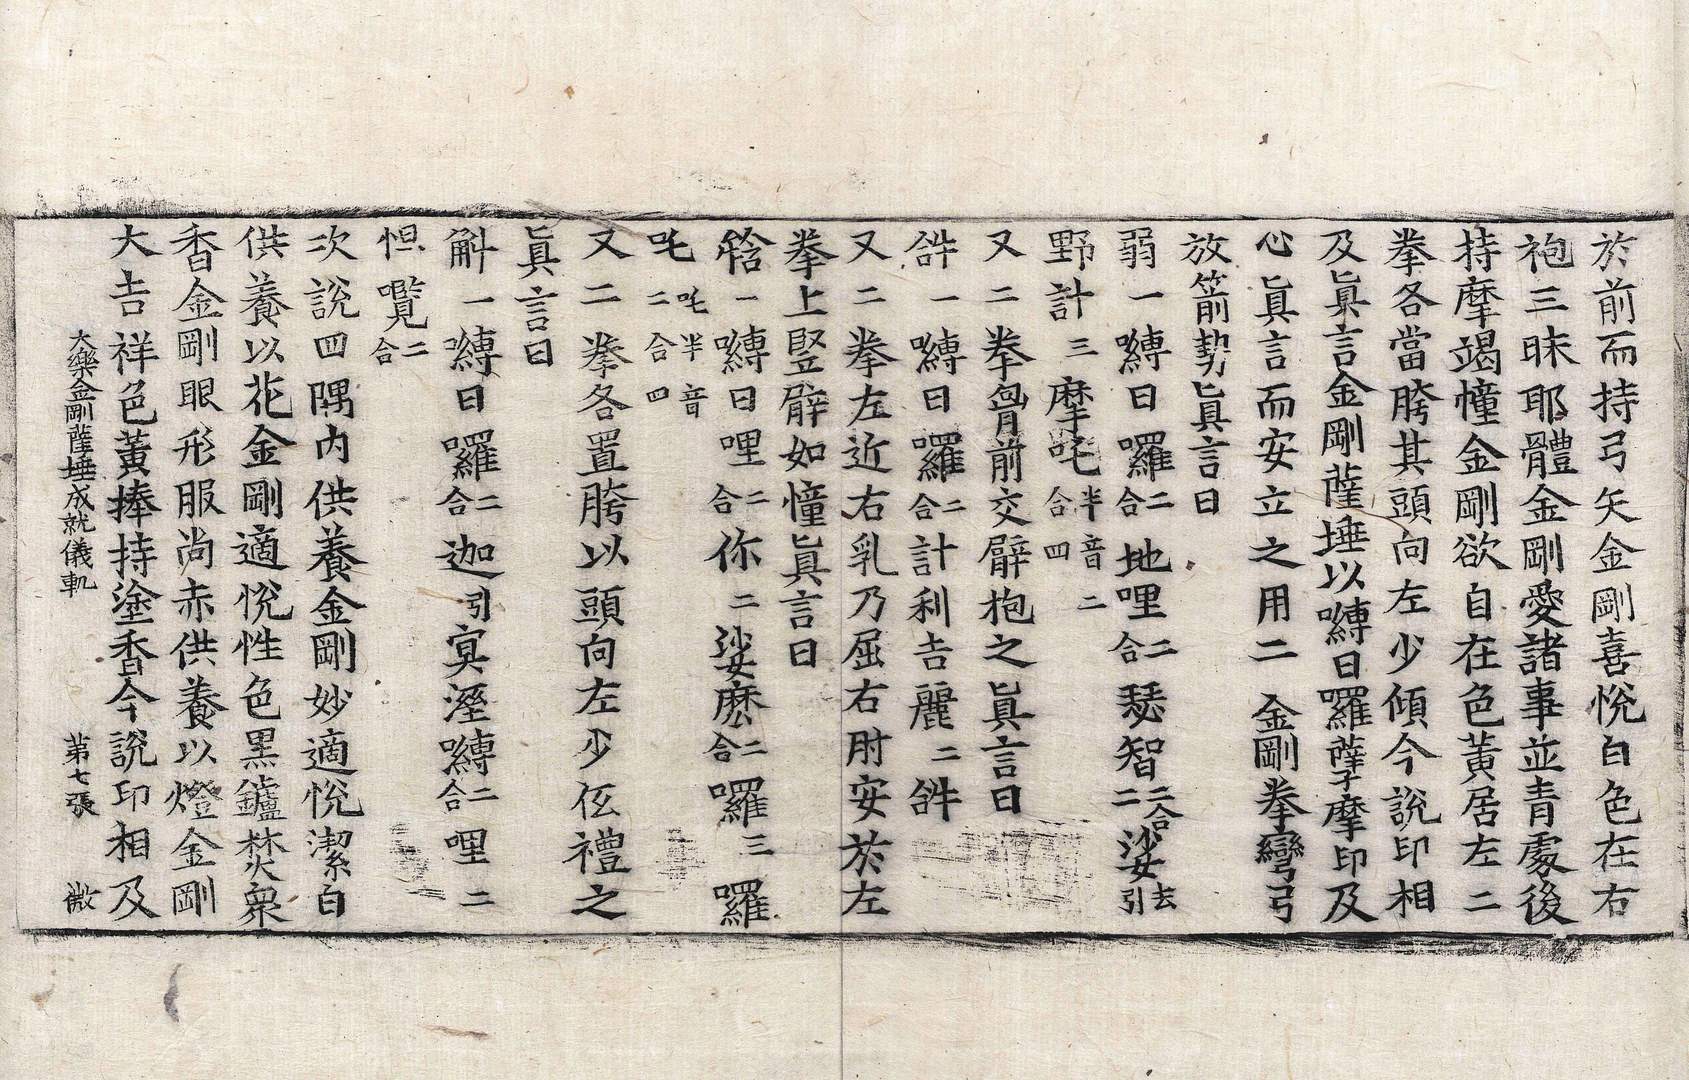 於前而持弓矢金剛喜悅白色在右
袍三昧耶體金剛愛諸事並青處後
持摩竭幢金剛欲自在色黃居左二
拳各當胯其頭向左少傾今說印相
及眞言金剛薩埵以嚩日囉薩摩印及
心眞言而安立之用二金剛拳彎弓
放箭勢眞言曰
弱一嚩日囉二合地哩二合瑟智二合二娑去引
野計三摩吒半音二合四
又二拳胷前交臂抱之眞言曰
斛一嚩日囉二合計利吉麗二斛
又二拳左近右乳乃屈右肘安於左
拳上竪臂如幢眞言曰
鴿一嚩日哩二合你二娑麽二合囉三囉
吒吒半音二合四
又二拳各置胯以頭向左少低禮之
眞言曰
斛一嚩日囉二合迦引冥溼嚩二合哩二
怛囕二合
次說四隅內供養金剛妙適悅潔白
供養以花金剛適悅性色黑鑪焚衆
香金剛眼形服尚赤供養以燈金剛
大吉祥色黃捧持塗香今說印相及
大樂金剛薩埵成就儀軌 第七張 微